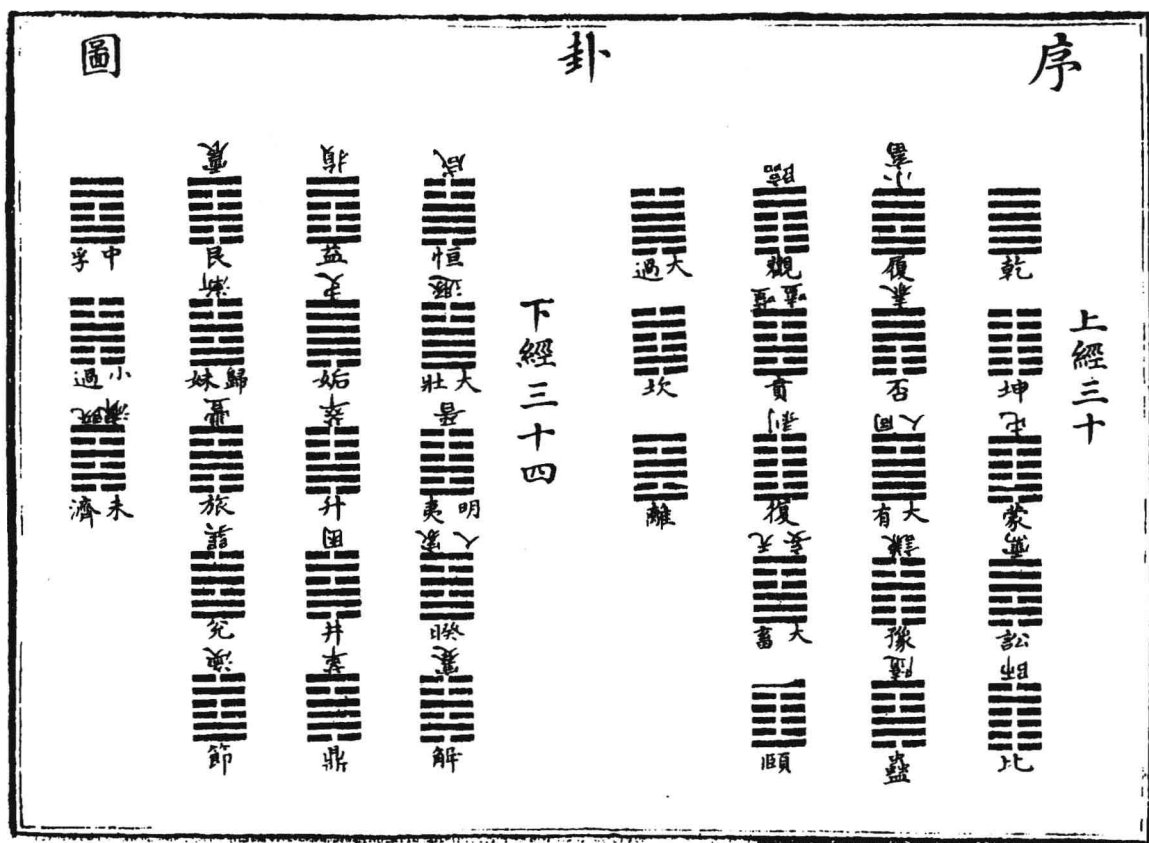 序卦圖
上經三十
乾
坤
屯
蒙
需
訟
師
比
小畜
履
泰
否
同人
大有
謙
豫
隨
蠱
臨
觀
噬嗑
賁
剥
復
无妄
大畜
頤
大過
坎
離
下經三十四
咸
恒
遯
大壯
晉
明夷
家人
睽
蹇
解
損
益
夬
姤
萃
升
困
井
革
鼎
震
艮
漸
歸妹
豐
旅
巽
兌
渙
節
中孚
小過
既濟
未濟